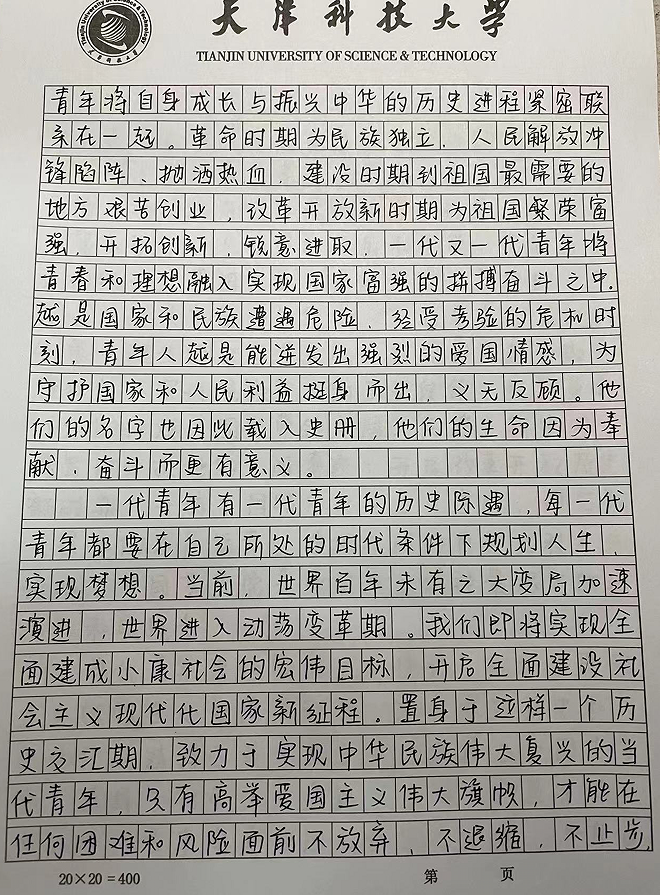 天津科技大学
TIANJIN UNIVERSITY OF SCIENCE & TECHNOLOGY
青年将自身成长与振兴中华的历史进程紧密联
系在一起。革命时期为民族独立、人民解放冲
锋陷阵、抛洒热血,建设时期到祖国最需要的
地方艰苦创业,改革开放新时期为祖国繁荣富
强,开拓创新,锐意进取,一代又一代青年将
青春和理想融入实现国家富强的拼搏奋斗之中.
越是国家和民族遭遇危险、经受考验的危机时
刻,青年人越是能迸发出强烈的爱国情感,为
守护国家和人民利益挺身而出,义无反顾。他
们的名字也因此载入史册,他们的生命因为奉
献、奋斗而更有意义。
一代青年有一代青年的历史际遇,每一代
青年都要在自己所处的时代条件下规划人生,
实现梦想。当前,世界百年未有之大变局加速
演进,世界进入动荡变革期。我们即将实现全
面建成小康社会的宏伟目标,开启全面建设社
会主义现代代国家新征程。置身于这样一个历
史交汇期,致力于实现中华民族伟大复兴的当
代青年,只有高举爱国主义伟大旗帜,才能在
任何困难和风险面前不放弃、不退缩,不止步,
20×20=400
第 页